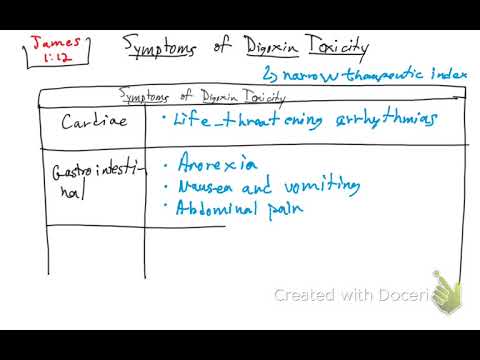 James
1:12
Symptoms of Digoxin Toxicity
↳ narrow therapeutic index
Symptoms of Digoxin Toxicity
Cardiac
• Life-threatening arrhythmias
Gastrointesti-
nal
• Anorexia
• Nausea and vomiting
• Abdominal pain
Created with Doceri